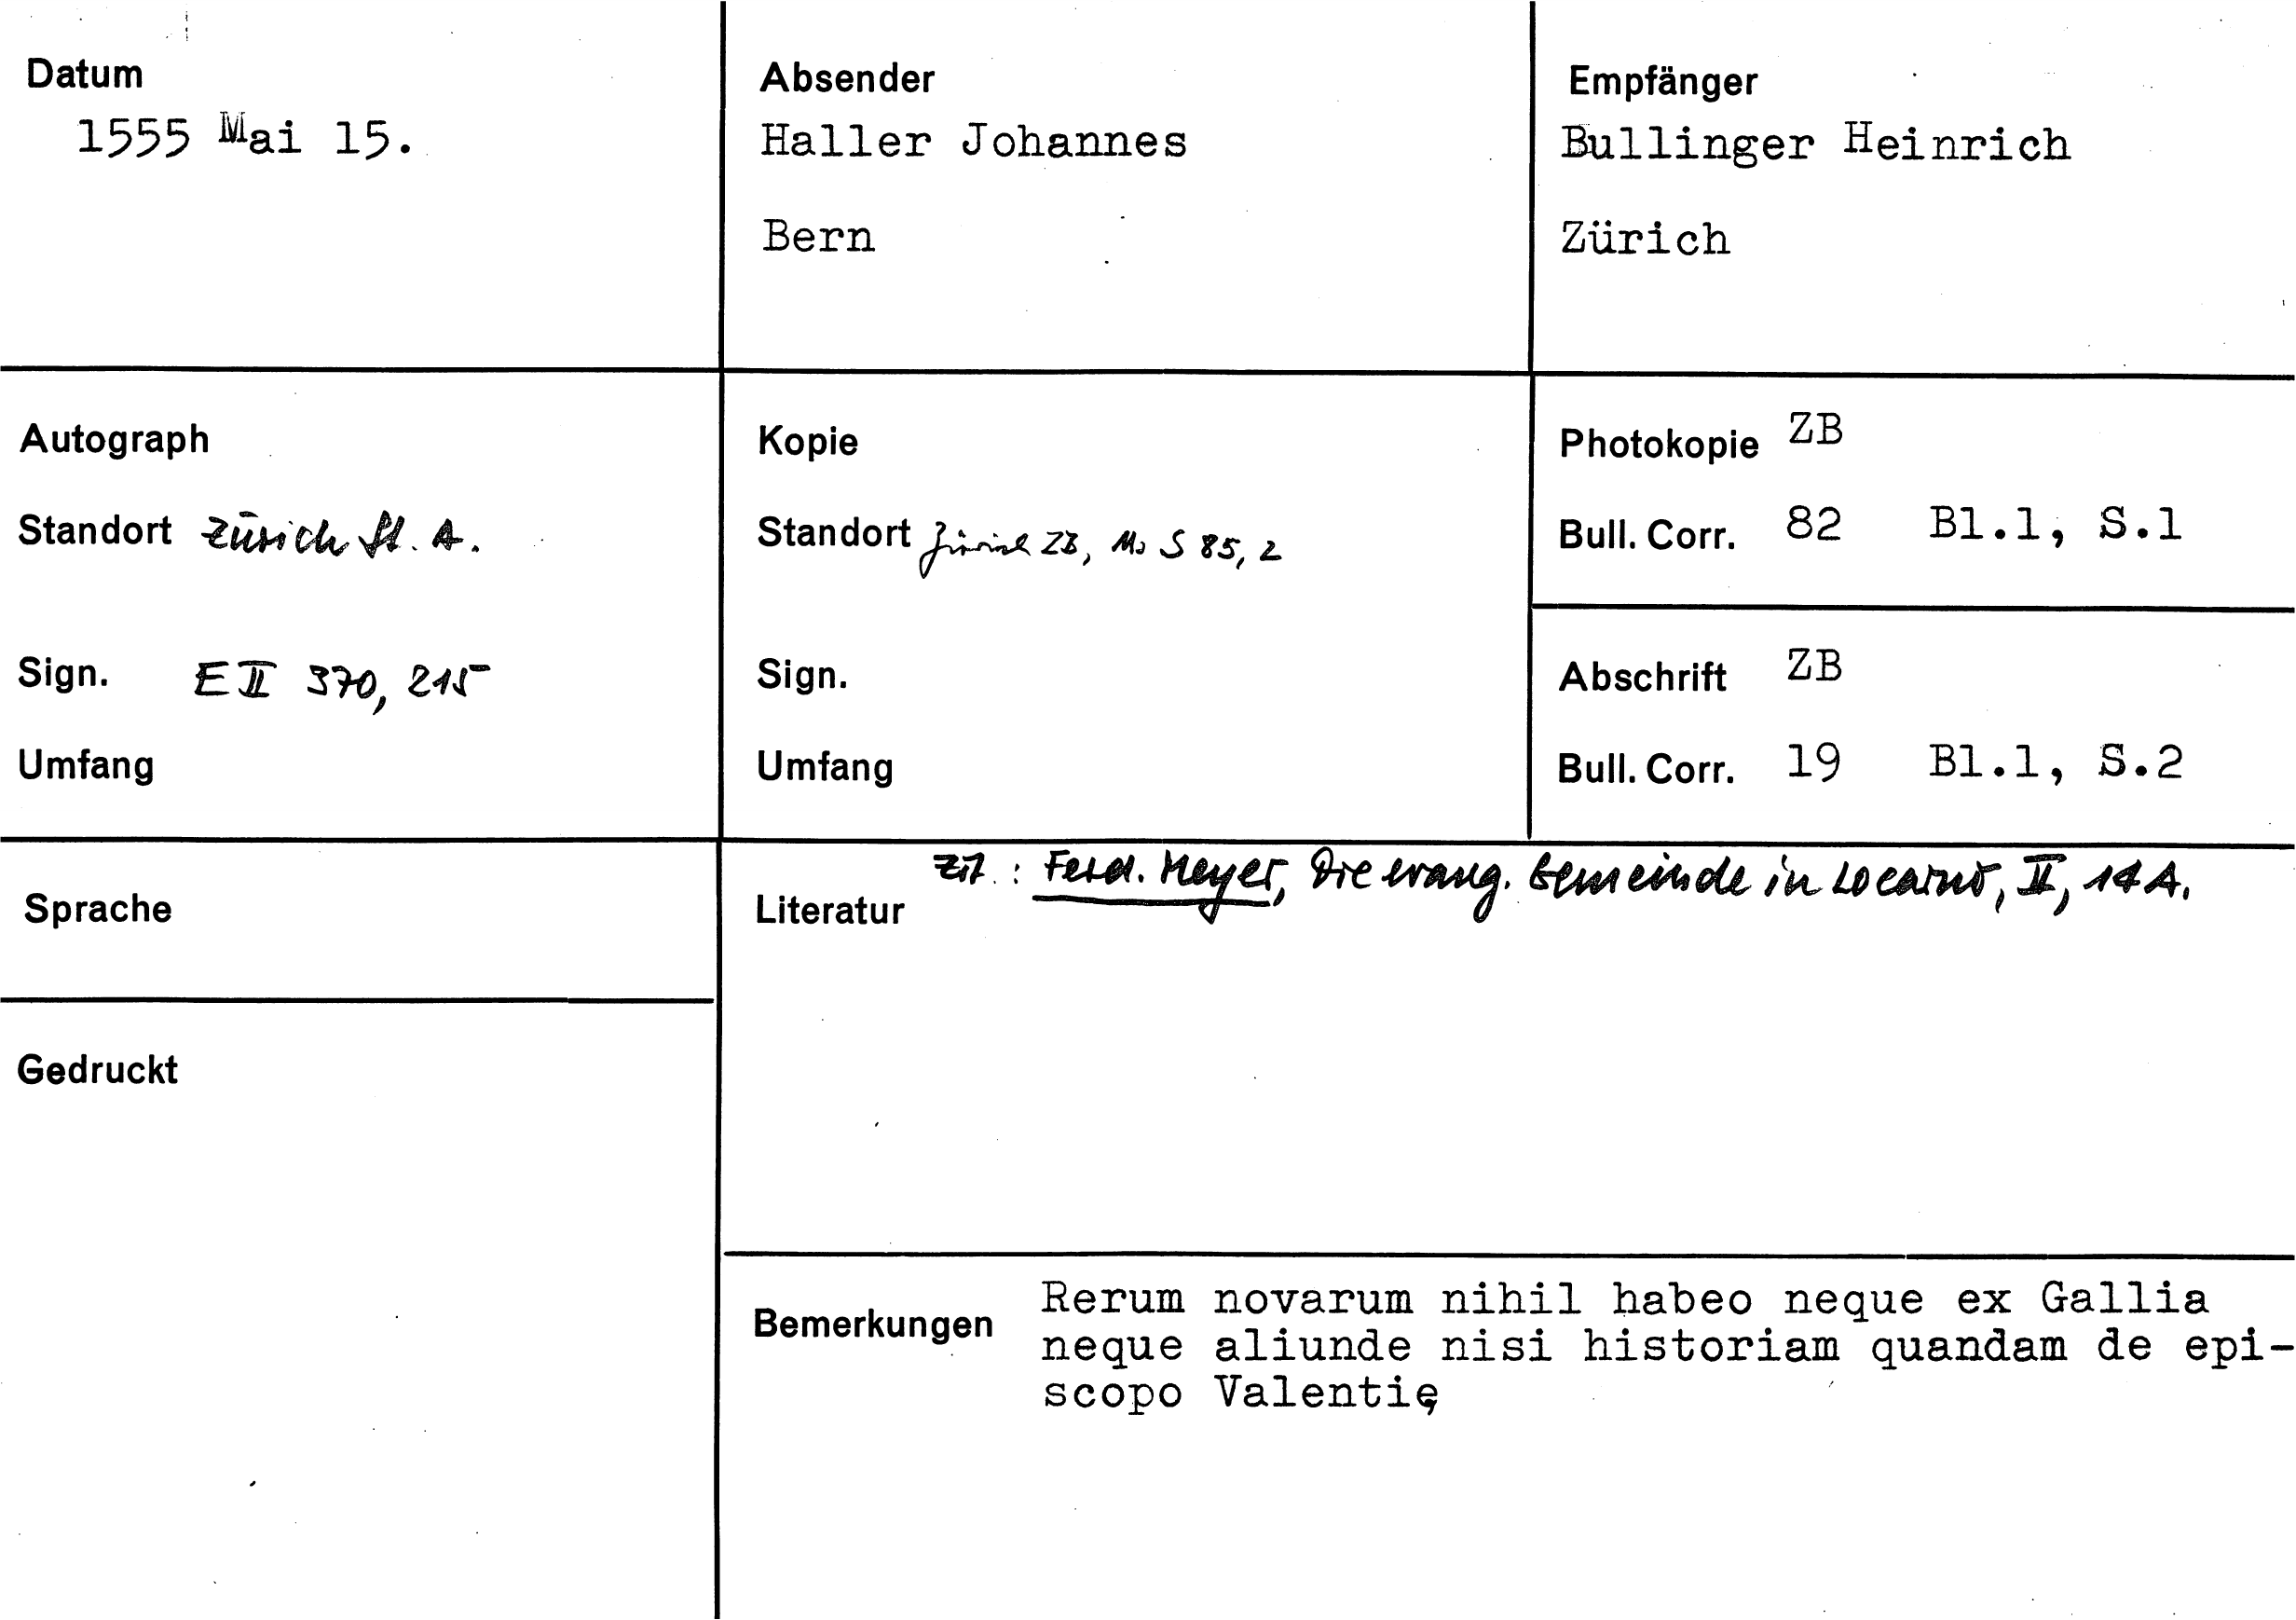 Datum
1555 Mai 15.
Absender
Haller Johannes
Bern
Empfänger
Bullinger Heinrich
Zürich
Autograph
Standort Zürich St. A.
Sign. E II 370, 215
Umfang
Kopie
Standort Zürich ZB, Ms S 85, 2
Sign.
Umfang
Photokopie ZB
Bull. Corr. 82 Bl.1, S.1
Abschrift ZB
Bull. Corr. 19 Bl.1, S.2
Sprache
Gedruckt
Zit.: Ferd. Meyer, Die evang. Gemeinde in Locarno, II, 14 A.
Literatur
Bemerkungen
Rerum novarum nihil habeo neque ex Gallia
neque aliunde nisi historiam quandam de epi-
scopo Valentię